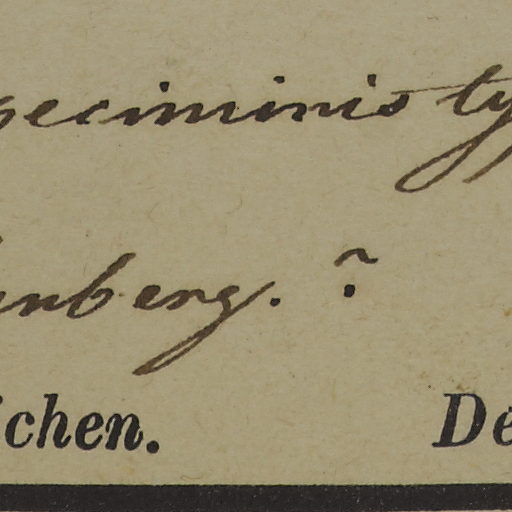 eciminis ty
nberg. ?
ichen. De